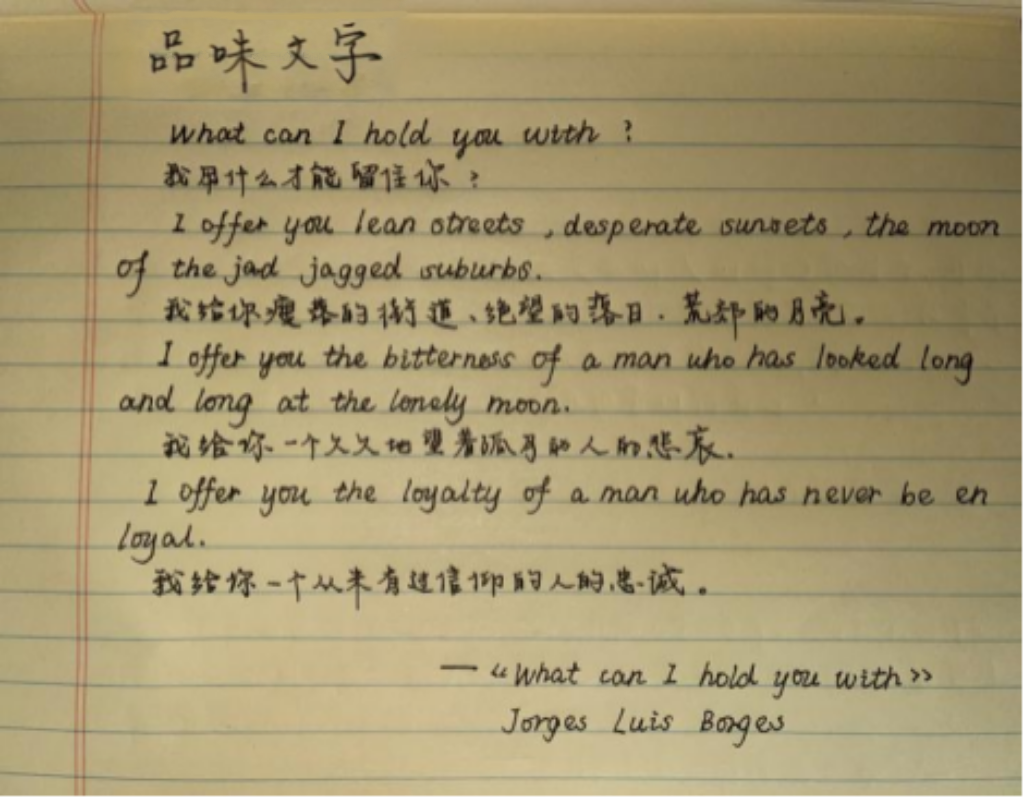 品味文字
What can I hold you with ?
我用什么才能留住你 ?
I offer you lean streets , desperate sunsets , the moon
of the jad jagged suburbs.
我给你瘦落的街道、绝望的落日、荒郊的月亮。
I offer you the bitterness of a man who has looked long
and long at the lonely moon.
我给你一个久久地望着孤月的人的悲哀.
I offer you the loyalty of a man who has never be en
loyal.
我给你一个从未有过信仰的人的忠诚。
— «What can I hold you with»
Jorges Luis Borges